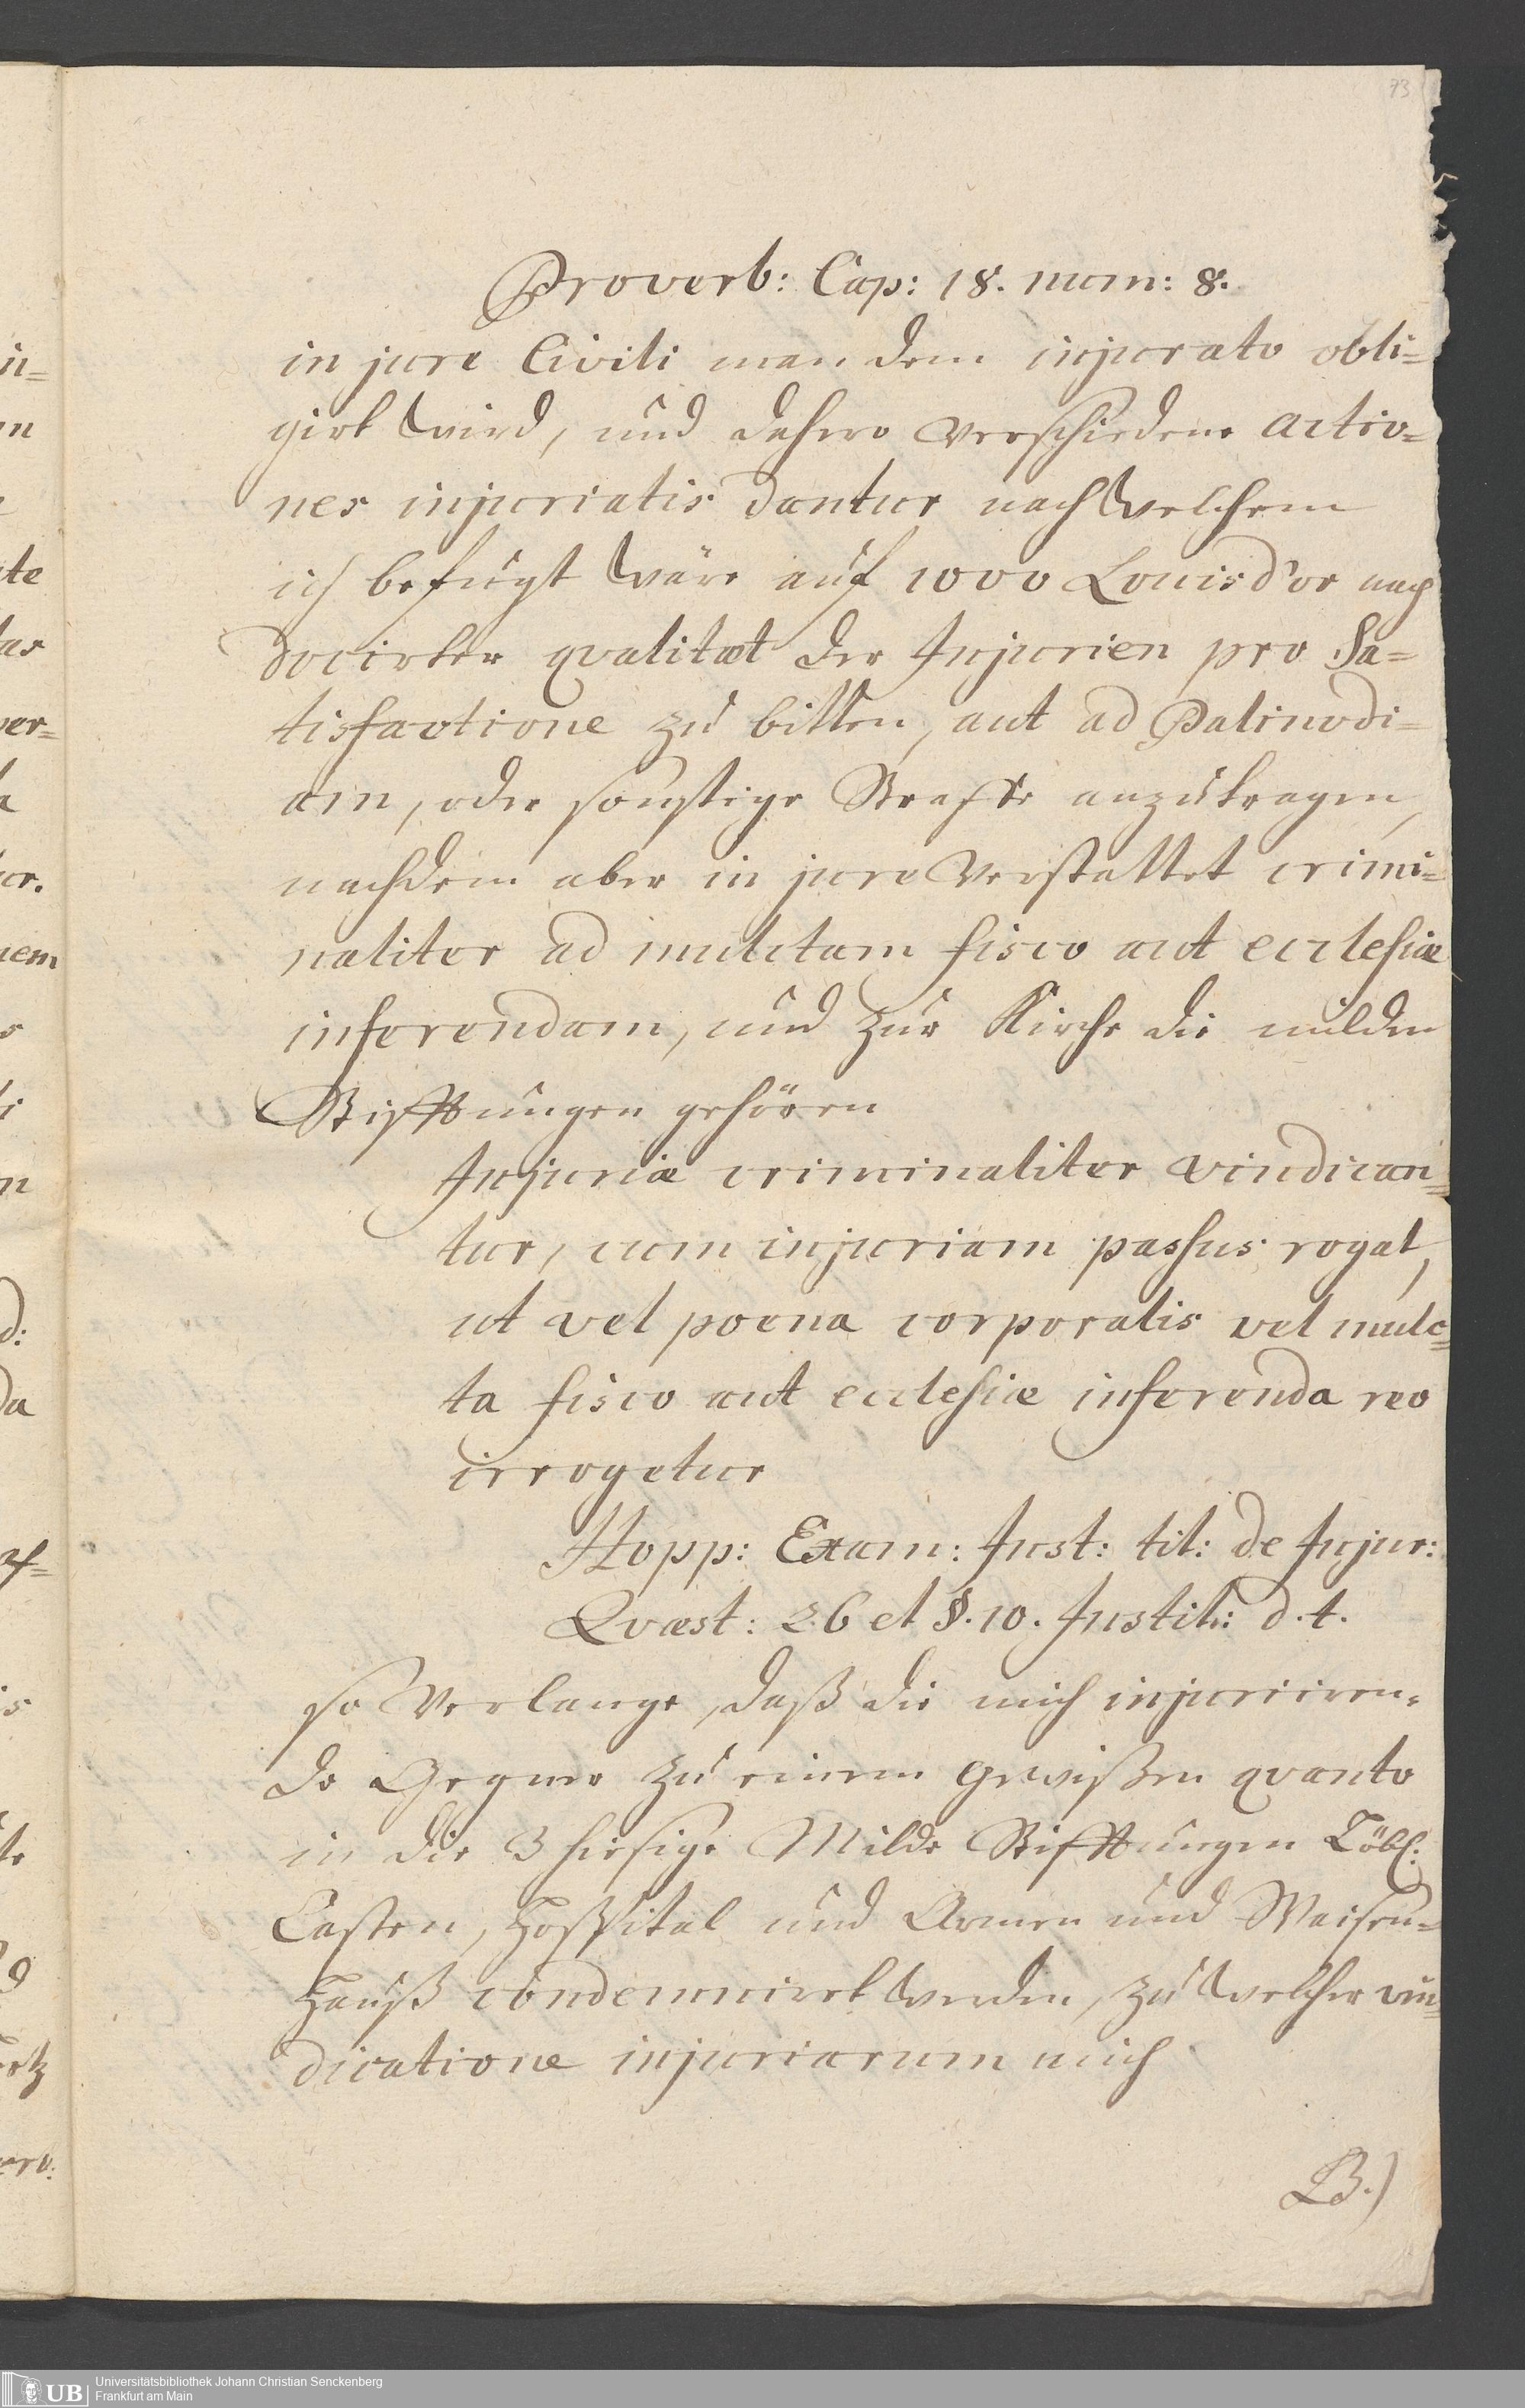 73
Proverb: Cap: 18. num: 8.
in jure Civili man dem injurato obli=
girt wird, und dahero verschiedene actio=
nes injuriatis dantur nach welchem
ich befugt wäre auf 1000 Louisd'or nach
docirter qvalitæt der Injurien pro Sa=
tisfactione zu bitten, aut ad Palinodi=
am, oder sonstige Straffe anzutragen,
nachdem aber in jure verstattet crimi=
naliter ad mulctam fisco aut ecclesiæ
inferendam, und zur Kirche die milden
Stifftungen gehören
Injuriæ criminaliter vindican=
tur, cum injuriam passus rogat,
ut vel poena corporalis vel mulc=
ta fisco aut ecclesiæ inferenda reo
irrogetur
Hopp: Exam: Inst: tit: de Injur:
Qvæst: 26 et §. 10. Instit: d. t.
so verlange, daß die mich injuriiren=
de Gegner zu einem gewißen qvanto
in die 3 hiesige Milde Stifftungen Löbl:
Casten, Hospital und Armen und Waisen=
Hauß condemnirt werden, zu welcher vin=
dicatione injuriarum mich
B.)
UB
Universitätsbibliothek Johann Christian Senckenberg
Frankfurt am Main